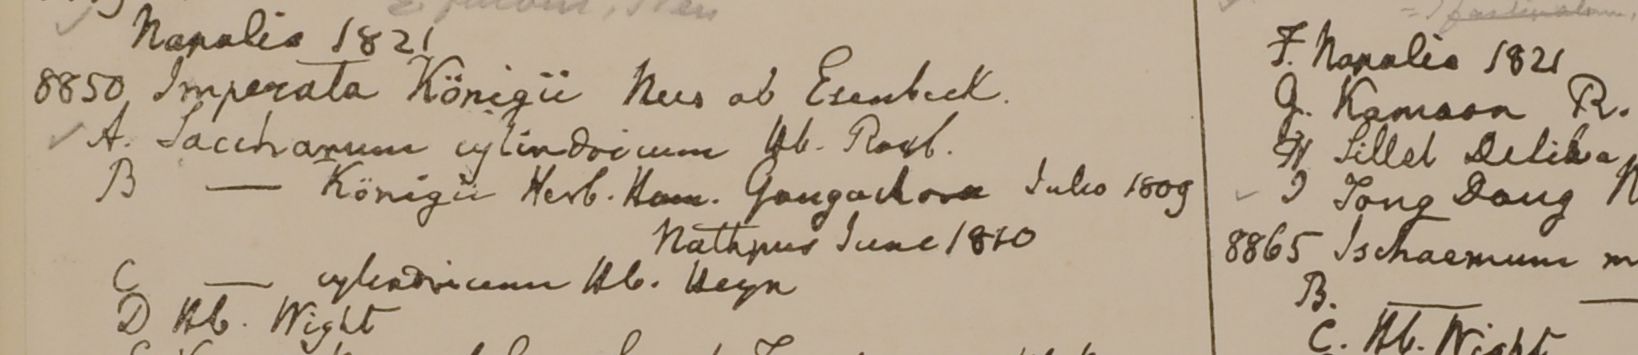 Napalia 1821
8850 Imperata Königii Nees ab Esenbeck.
A. Saccharum cylindricum Hb. Roxb.
B — Königii Herb. Ham. Gongachora Julio 1809
Nathpur June 1810
C — cylindricum Hb. Heyn
D Hb. Wight
F. Napalia 1821
G. Kamaon R.
H Sillet Delika
I Tong Dong
8865 Ischaemum m
B. — —
C. Hb. Wight